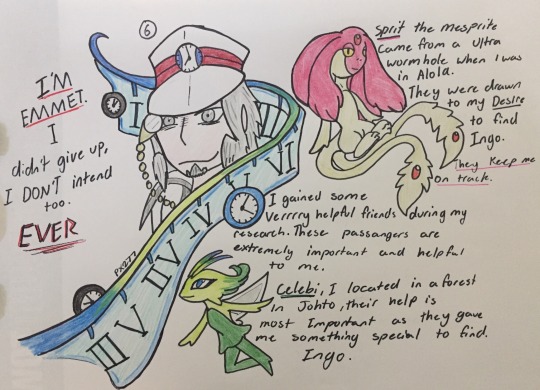 6
I'M
EMMET.
I
didn't give up,
I DON'T intend
too.
EVER
Sprit the mesprite
came from a ultra
wormhole when I was
in Alola.
They were drawn
to my Desire
to find
Ingo.
They keep me
on track.
I gained some
Verrrry helpful friends during my
research. These passangers are
extremely important and helpful
to me.
Celebi, I located in a forest
in Johto, their help is
most Important as they gave
me something special to find.
Ingo.
I
VII
VI
V
IV
IIV
V
III